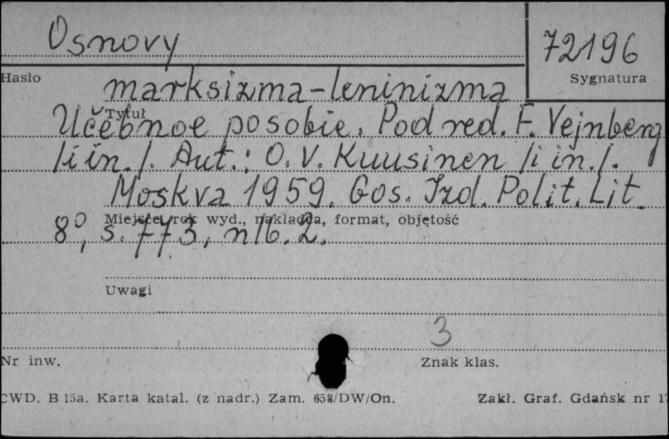 Osnovy
72196
Hasło
Sygnatura
marksizma-leninizma
Tytuł
Učebnoe posobie. Pod red. F. Vejnberg
/i in./. Aut.: O. V. Kuusinen /i in./.
Moskva 1959. Gos. Izd. Polit. Lit.
Miejsce, rok wyd., nakładca, format, objętość
8°, s. 773, nlb. 2.
Uwagi
3
Nr inw.
Znak klas.
CWD. B 15a. Karta katal. (z nadr.) Zam. 658/DW/On.
Zakł. Graf. Gdańsk nr 1